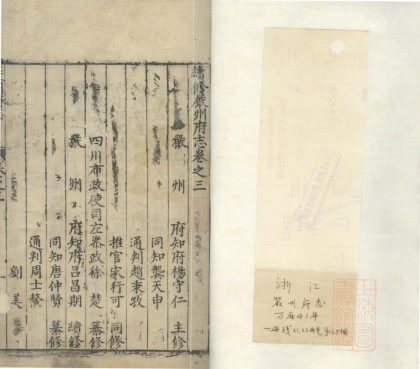 續修嚴州府志卷之三
嚴州府知府楊守仁主修
同知龔天申
通判趙秉牧
推官宋行可同修
四川布政使司左參政徐楚纂修
嚴州府知府呂昌期續修
同知唐仲賢纂修
通判周士縶
劉美
浙江
嚴州府志
万历41年
上海圖書館